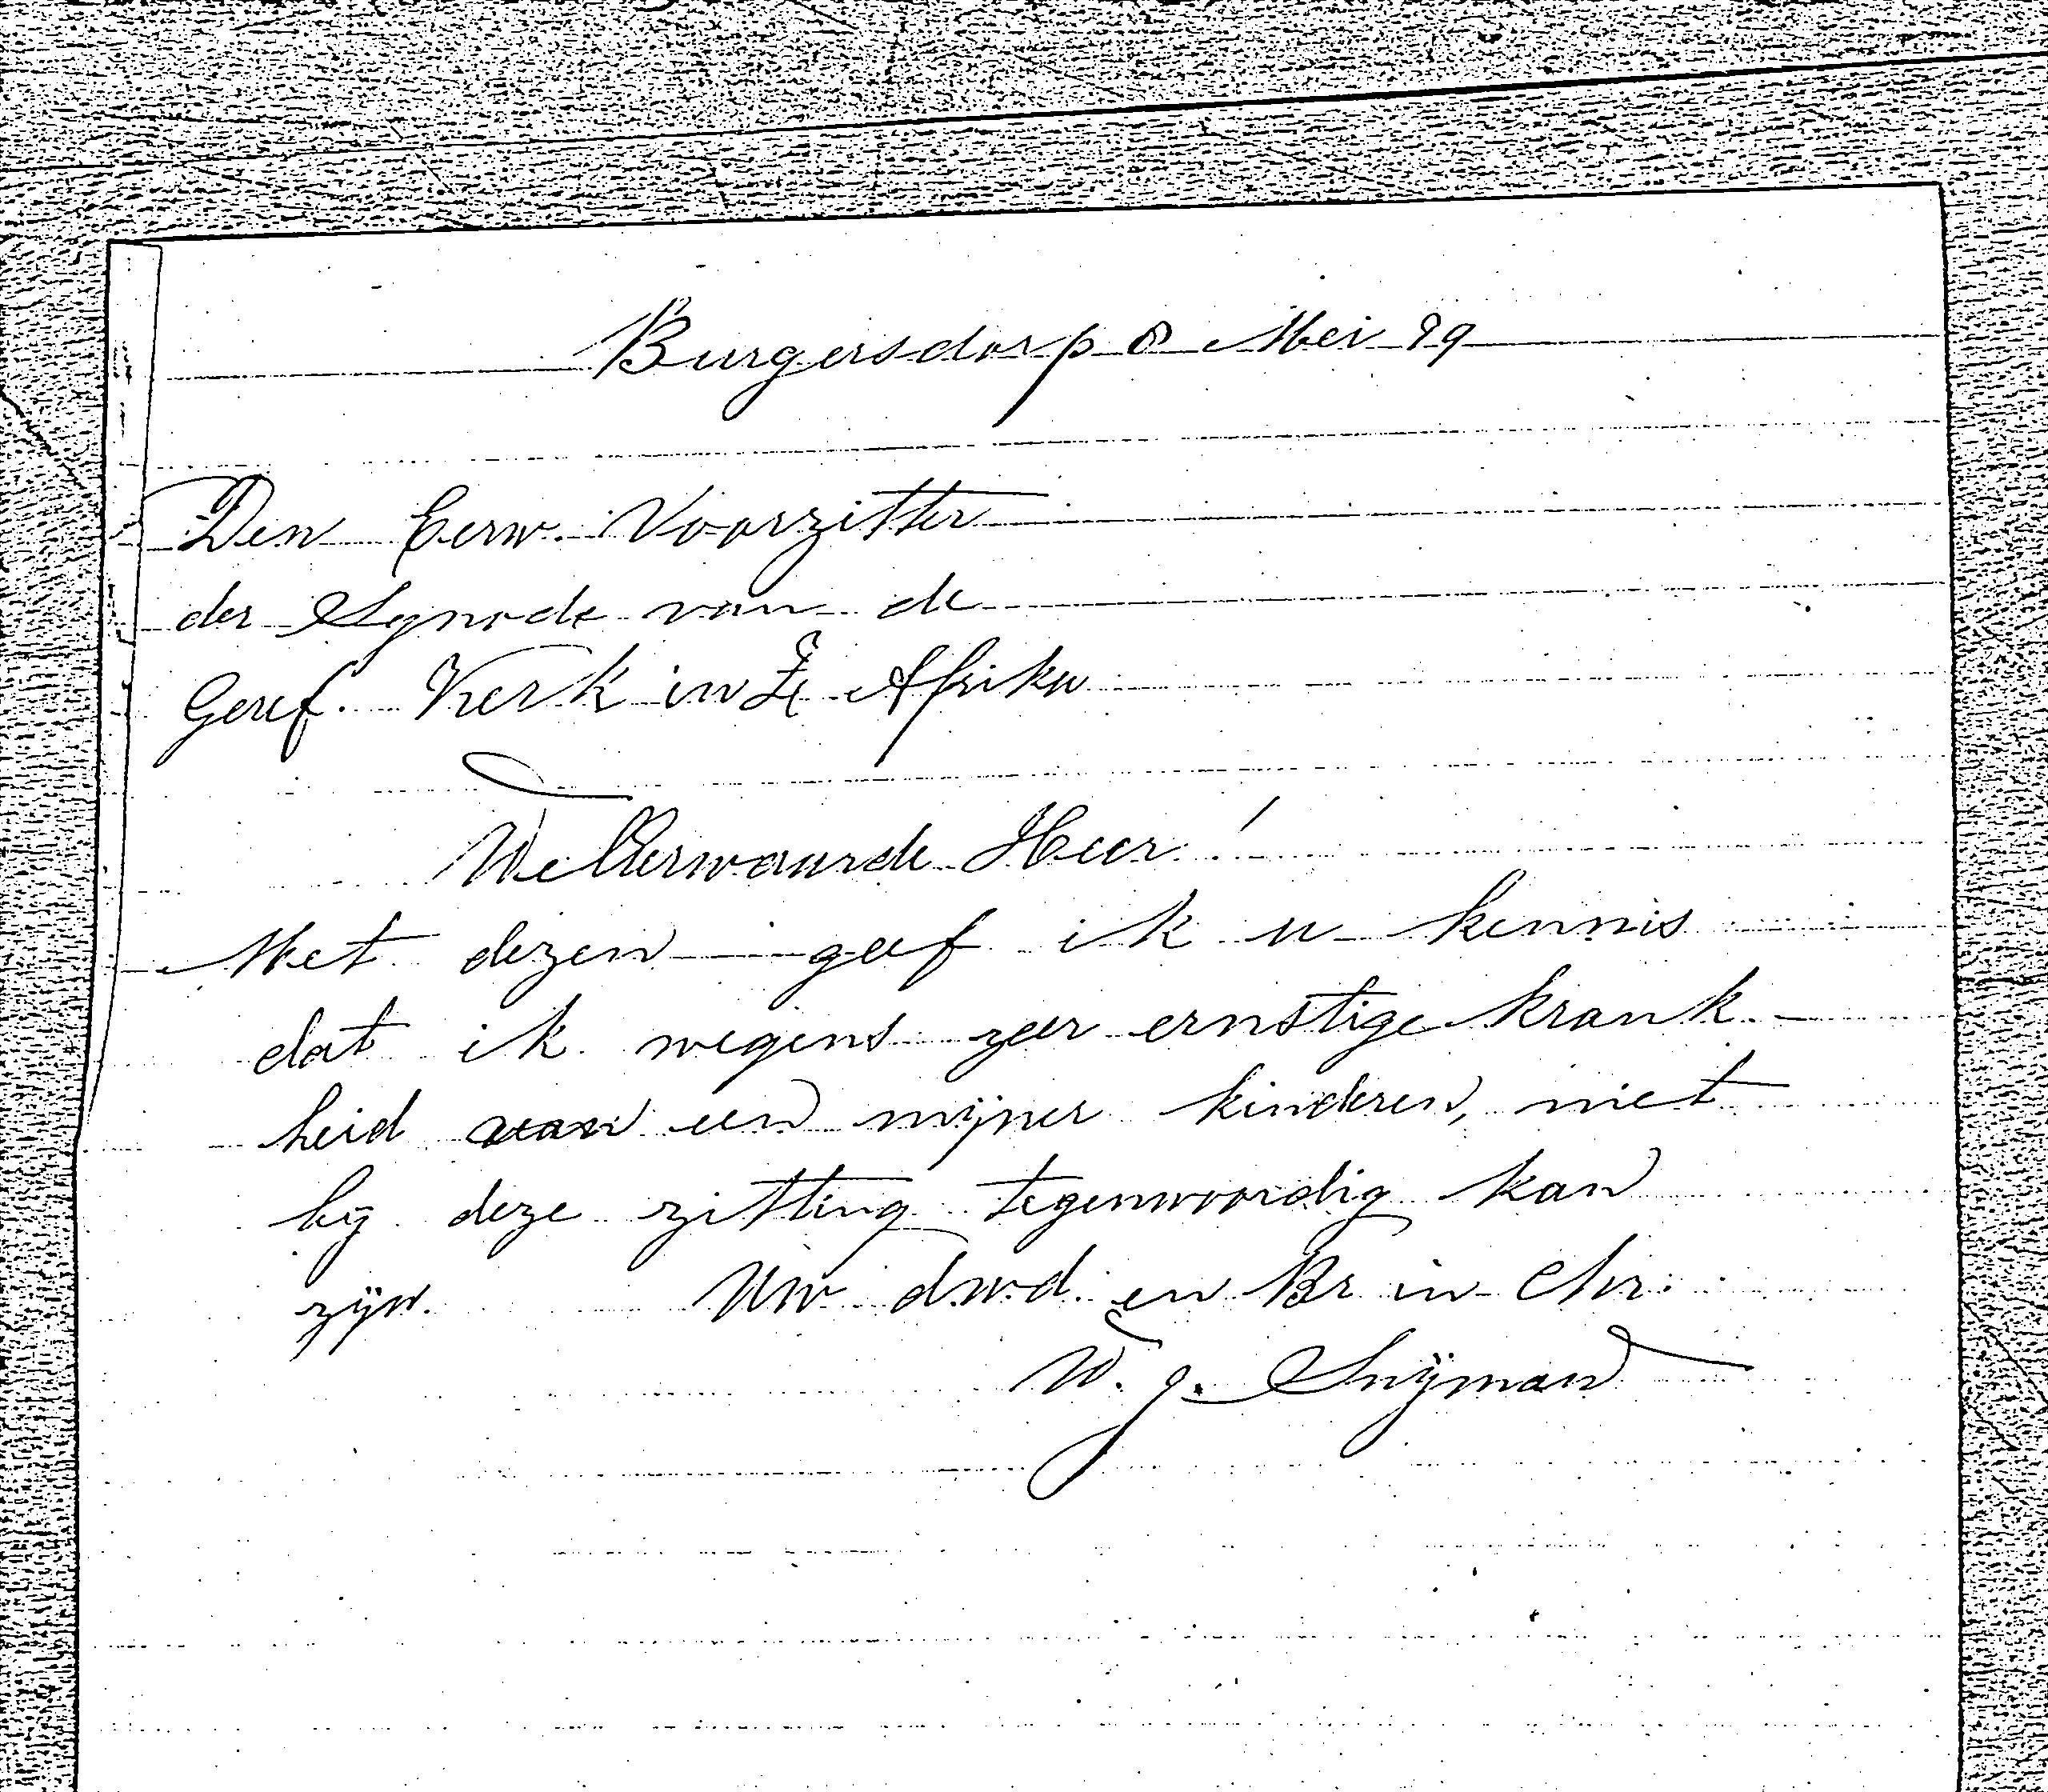 Burgersdorp 8 Mei 99
Den Eerw. Voorzitter
der Synode van de
Geref. Kerk in Z. Afrika
WelEerwaarde Heer!
Met dezen geef ik u kennis
dat ik wegens zeer ernstige krank-
heid van een mijner kinderen, niet
bij deze zitting tegenwoordig kan
zijn. Uw dwd. en Br in Chr.
W. J. Snÿman